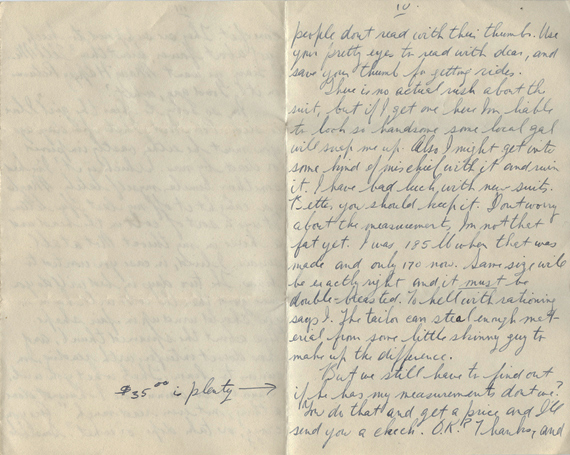 IV
people dont read with their thumbs. Use
your pretty eyes to read with dear, and
save your thumb for getting rides.
There is no actual rush about the
suit, but if I get one here Im liable
to look so handsome some local gal
will snap me up. Also I might get into
some kind of mischief with it and ruin
it. I have bad luck with new suits.
Better you should keep it. Dont worry
about the measurements, Im not that
fat yet. I was 185 lb when that was
made and only 170 now. Same size will
be exactly right and it must be
double-breasted. To hell with rationing
says I. The tailor can steal enough mat-
erial from some little skinny guy to
make up the difference.
But we still have to find out
if he has my measurements dont we?
You do that and get a price and I'll
send you a check. O.K.? Thanks, and
$35.00 is plenty →